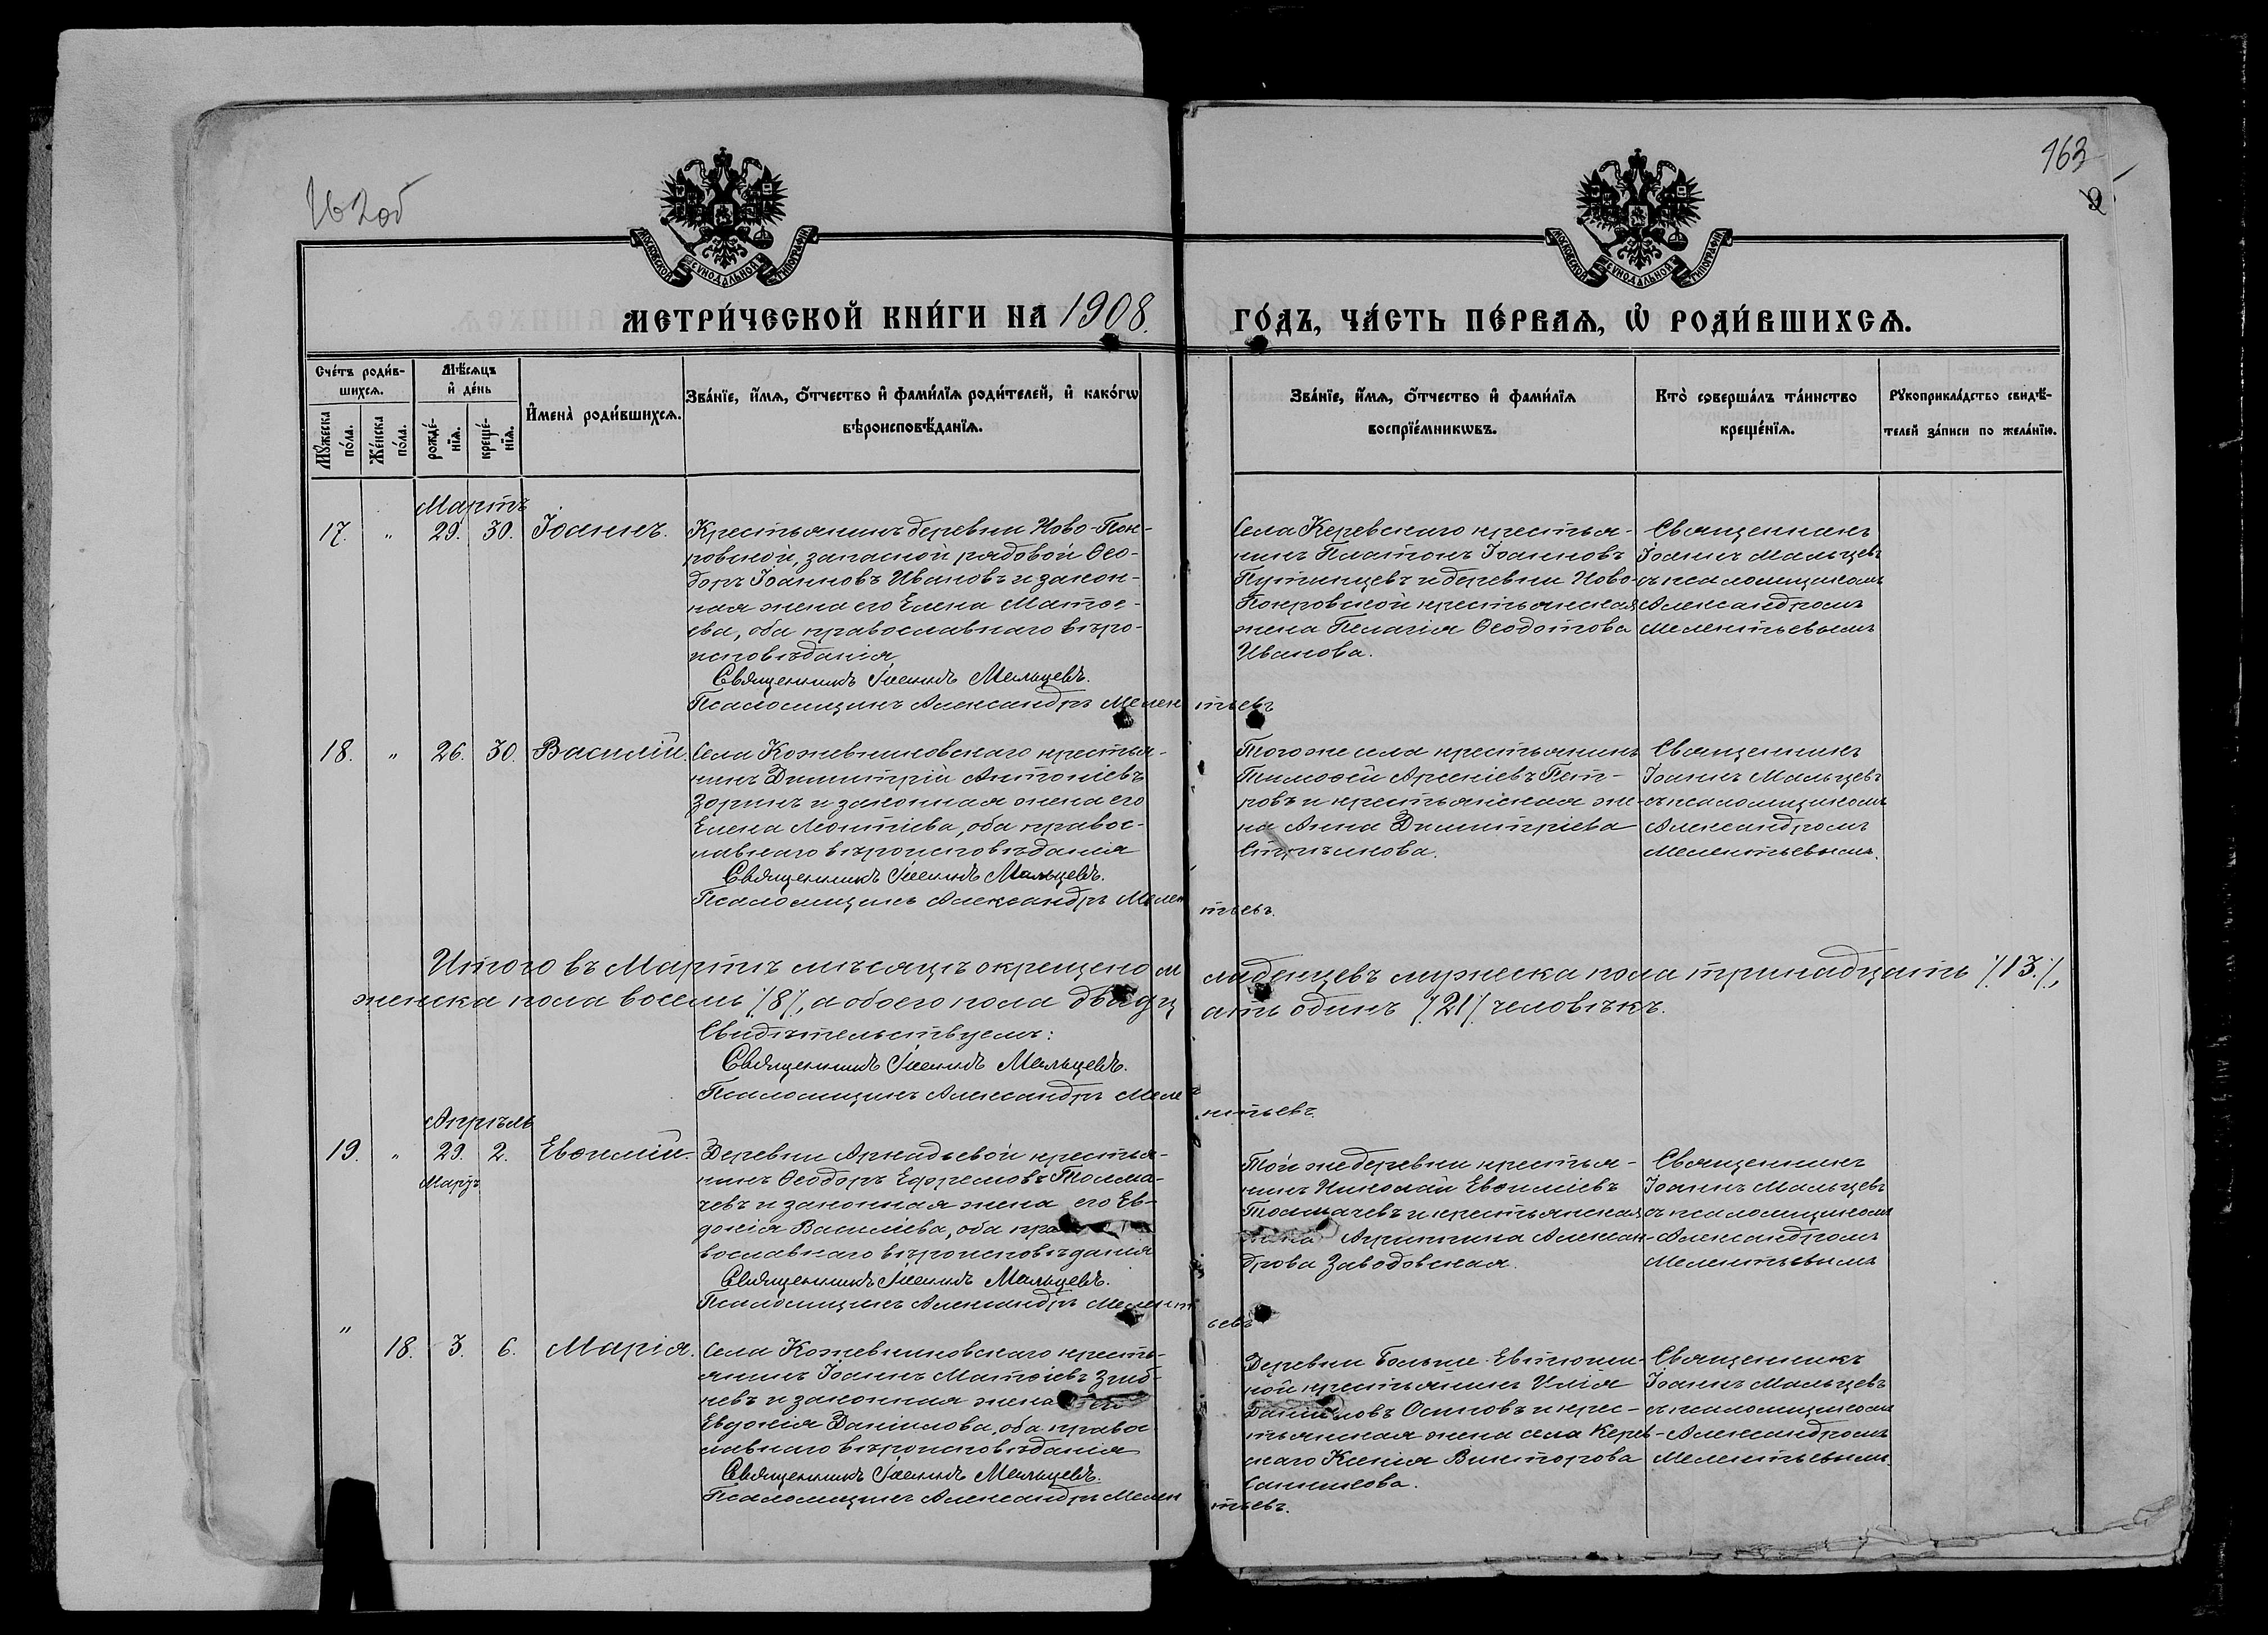 162об
163
2
МОСКОВСКОЙ СѴНОДАЛЬНОЙ ТИПОГРАФІИ
МОСКОВСКОЙ СѴНОДАЛЬНОЙ ТИПОГРАФІИ
МЕТРИ́ЧЕСКОЙ КНИ́ГИ НА 1908.
ГО́ДЪ, ЧА́СТЬ ПЕ́РВАѦ, Ѡ РОДИ́ВШИХСѦ.
Сче́тъ роди́в-
шихсѧ.
Мꙋ́жеска по́ла.
Же́нска по́ла.
Мѣ́сѧцъ
и҆ де́нь
рожде́-
нїѧ.
креще́-
нїѧ.
И҆мена̀ роди́вшихсѧ.
Зва́нїе, и҆́мѧ, ѻ҆́тчество и҆ фами́лїѧ роди́телей, и҆ како́гѡ
вѣроисповѣ́данїѧ.
Зва́нїе, и҆́мѧ, ѻ҆́тчество и҆ фами́лїѧ
воспрїе́мникѡвъ.
Кто̀ соверша́лъ та́инство
креще́нїѧ.
Рꙋкоприкла́дство свидѣ́-
телей за́писи по жела́нїю.
Мартъ
17. " 29. 30. Іоаннъ.
Крестьянинъ деревни Ново-Пок-
ровской, запасной рядовой Ѳео-
доръ Іоанновъ Ивановъ и закон-
ная жена его Елена Матѳе-
ева, оба православнаго вѣро-
исповѣданія
Священникъ Іоаннъ Мальцевъ.
Псаломщикъ Александръ Мелентьевъ
Села Керевскаго крестья-
нинъ Платонъ Іоанновъ
Путинцевъ и деревни Ново-
Покровской крестьянская
жена Пелагія Ѳеодотова
Иванова.
Священникъ
Іоаннъ Мальцевъ
съ псаломщикомъ
Александромъ
Мелентьевымъ
18. " 26. 30. Василій.
Села Кожевниковскаго крестья-
нинъ Димитрій Антоніевъ
Зоринъ и законная жена его
Елена Леонтіева, оба правос-
лавнаго вѣроисповѣданія
Священникъ Іоаннъ Мальцевъ.
Псаломщикъ Александръ Мелентьевъ.
Того же села крестьянинъ
Тимоѳей Арсеніевъ Пет-
ровъ и крестьянская же-
на Анна Димитріева
Священникъ
Іоаннъ Мальцевъ
съ псаломщикомъ
Александромъ
Мелентьевымъ.
Итого въ Мартѣ мѣсяцѣ окрещено младенцевъ мужеска пола тринадцать /13./,
женска пола восемь /8/, а обоего пола двадцать одинъ /21/ человѣкъ.
Свидѣтельствуемъ:
Священникъ Іоаннъ Мальцевъ.
Псаломщикъ Александръ Мелентьевъ.
Апрѣль
19. " 29. 2. Евѳимій.
Мартъ
Деревни Аркадьевой крестья-
нинъ Ѳеодоръ Ефремовъ Толма-
чевъ и законная жена его Ев-
докія Василіева, оба пра-
вославнаго вѣроисповѣданія
Священникъ Іоаннъ Мальцевъ.
Псаломщикъ Александръ Мелентьевъ
Той же деревни крестья-
нинъ Николай Евѳиміевъ
Толмачевъ и крестьянская
жена Агриппина Алексан-
дрова Заводовская.
Священникъ
Іоаннъ Мальцевъ
съ псаломщикомъ
Александромъ
Мелентьевымъ
" 18. 3. 6. Марія.
Села Кожевниковскаго кресть-
янинъ Іоаннъ Матѳіевъ Зиб-
невъ и законная жена его
Евдокія Даніилова, оба правос-
лавнаго вѣроисповѣданія
Священникъ Іоаннъ Мальцевъ.
Псаломщикъ Александръ Мелентьевъ.
Деревни Больше-Евтюшин-
ской крестьянинъ Илія
Данииловъ Осиповъ и крес-
тьянская жена села Керев-
скаго Ксенія Викторова
Санникова.
Священникъ
Іоаннъ Мальцевъ
съ псаломщикомъ
Александромъ
Мелентьевымъ